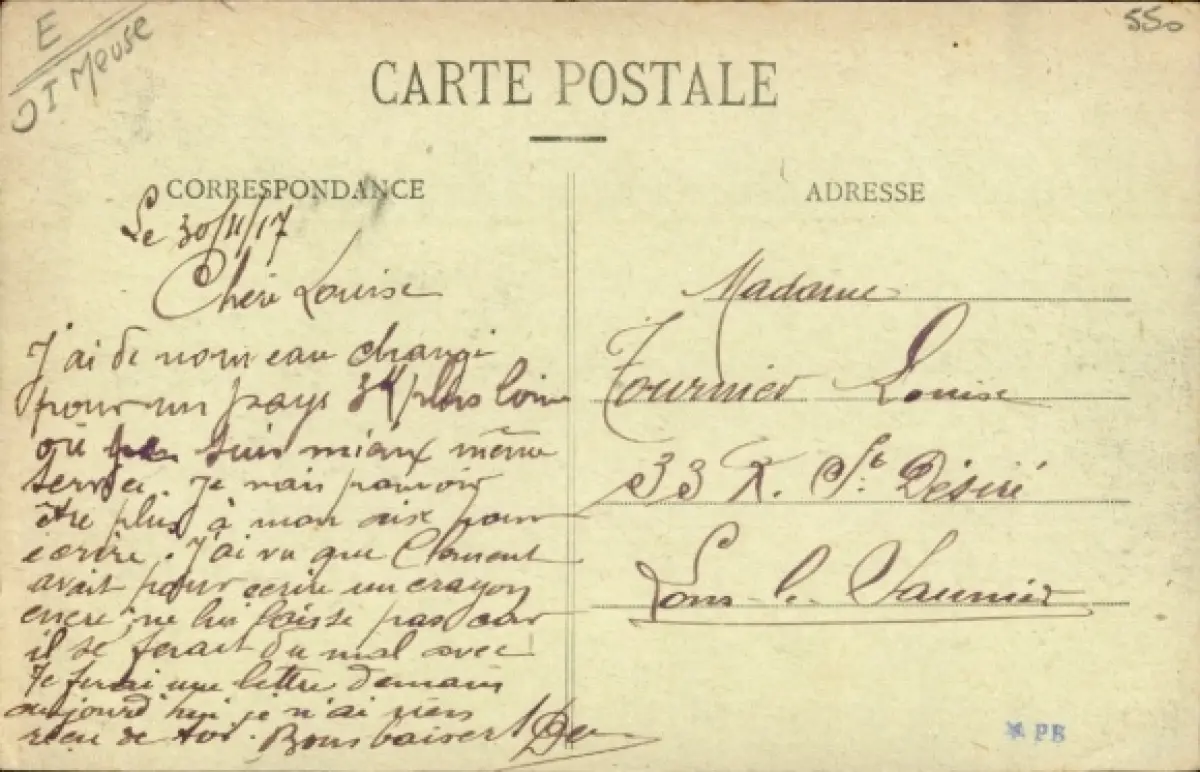 E
DI Meuse
550
CARTE POSTALE
CORRESPONDANCE
Le 30/11/17
Chère Louise
J'ai de nouveau changé
pour un pays 3K plus loin
où suis mieux même
service. Je vais pouvoir
être plus à mon aise pour
écrire. J'ai vu que Clément
avait pour écrire un crayon
encre, ne lui laisse pas car
il se ferait du mal avec
Je ferai une lettre demain
aujourd'hui je n'ai rien
reçu de toi. Bons baisers
ADRESSE
Madame
Tournier Louise
33 R. St. Désiré
Lons-le-Saunier
PB